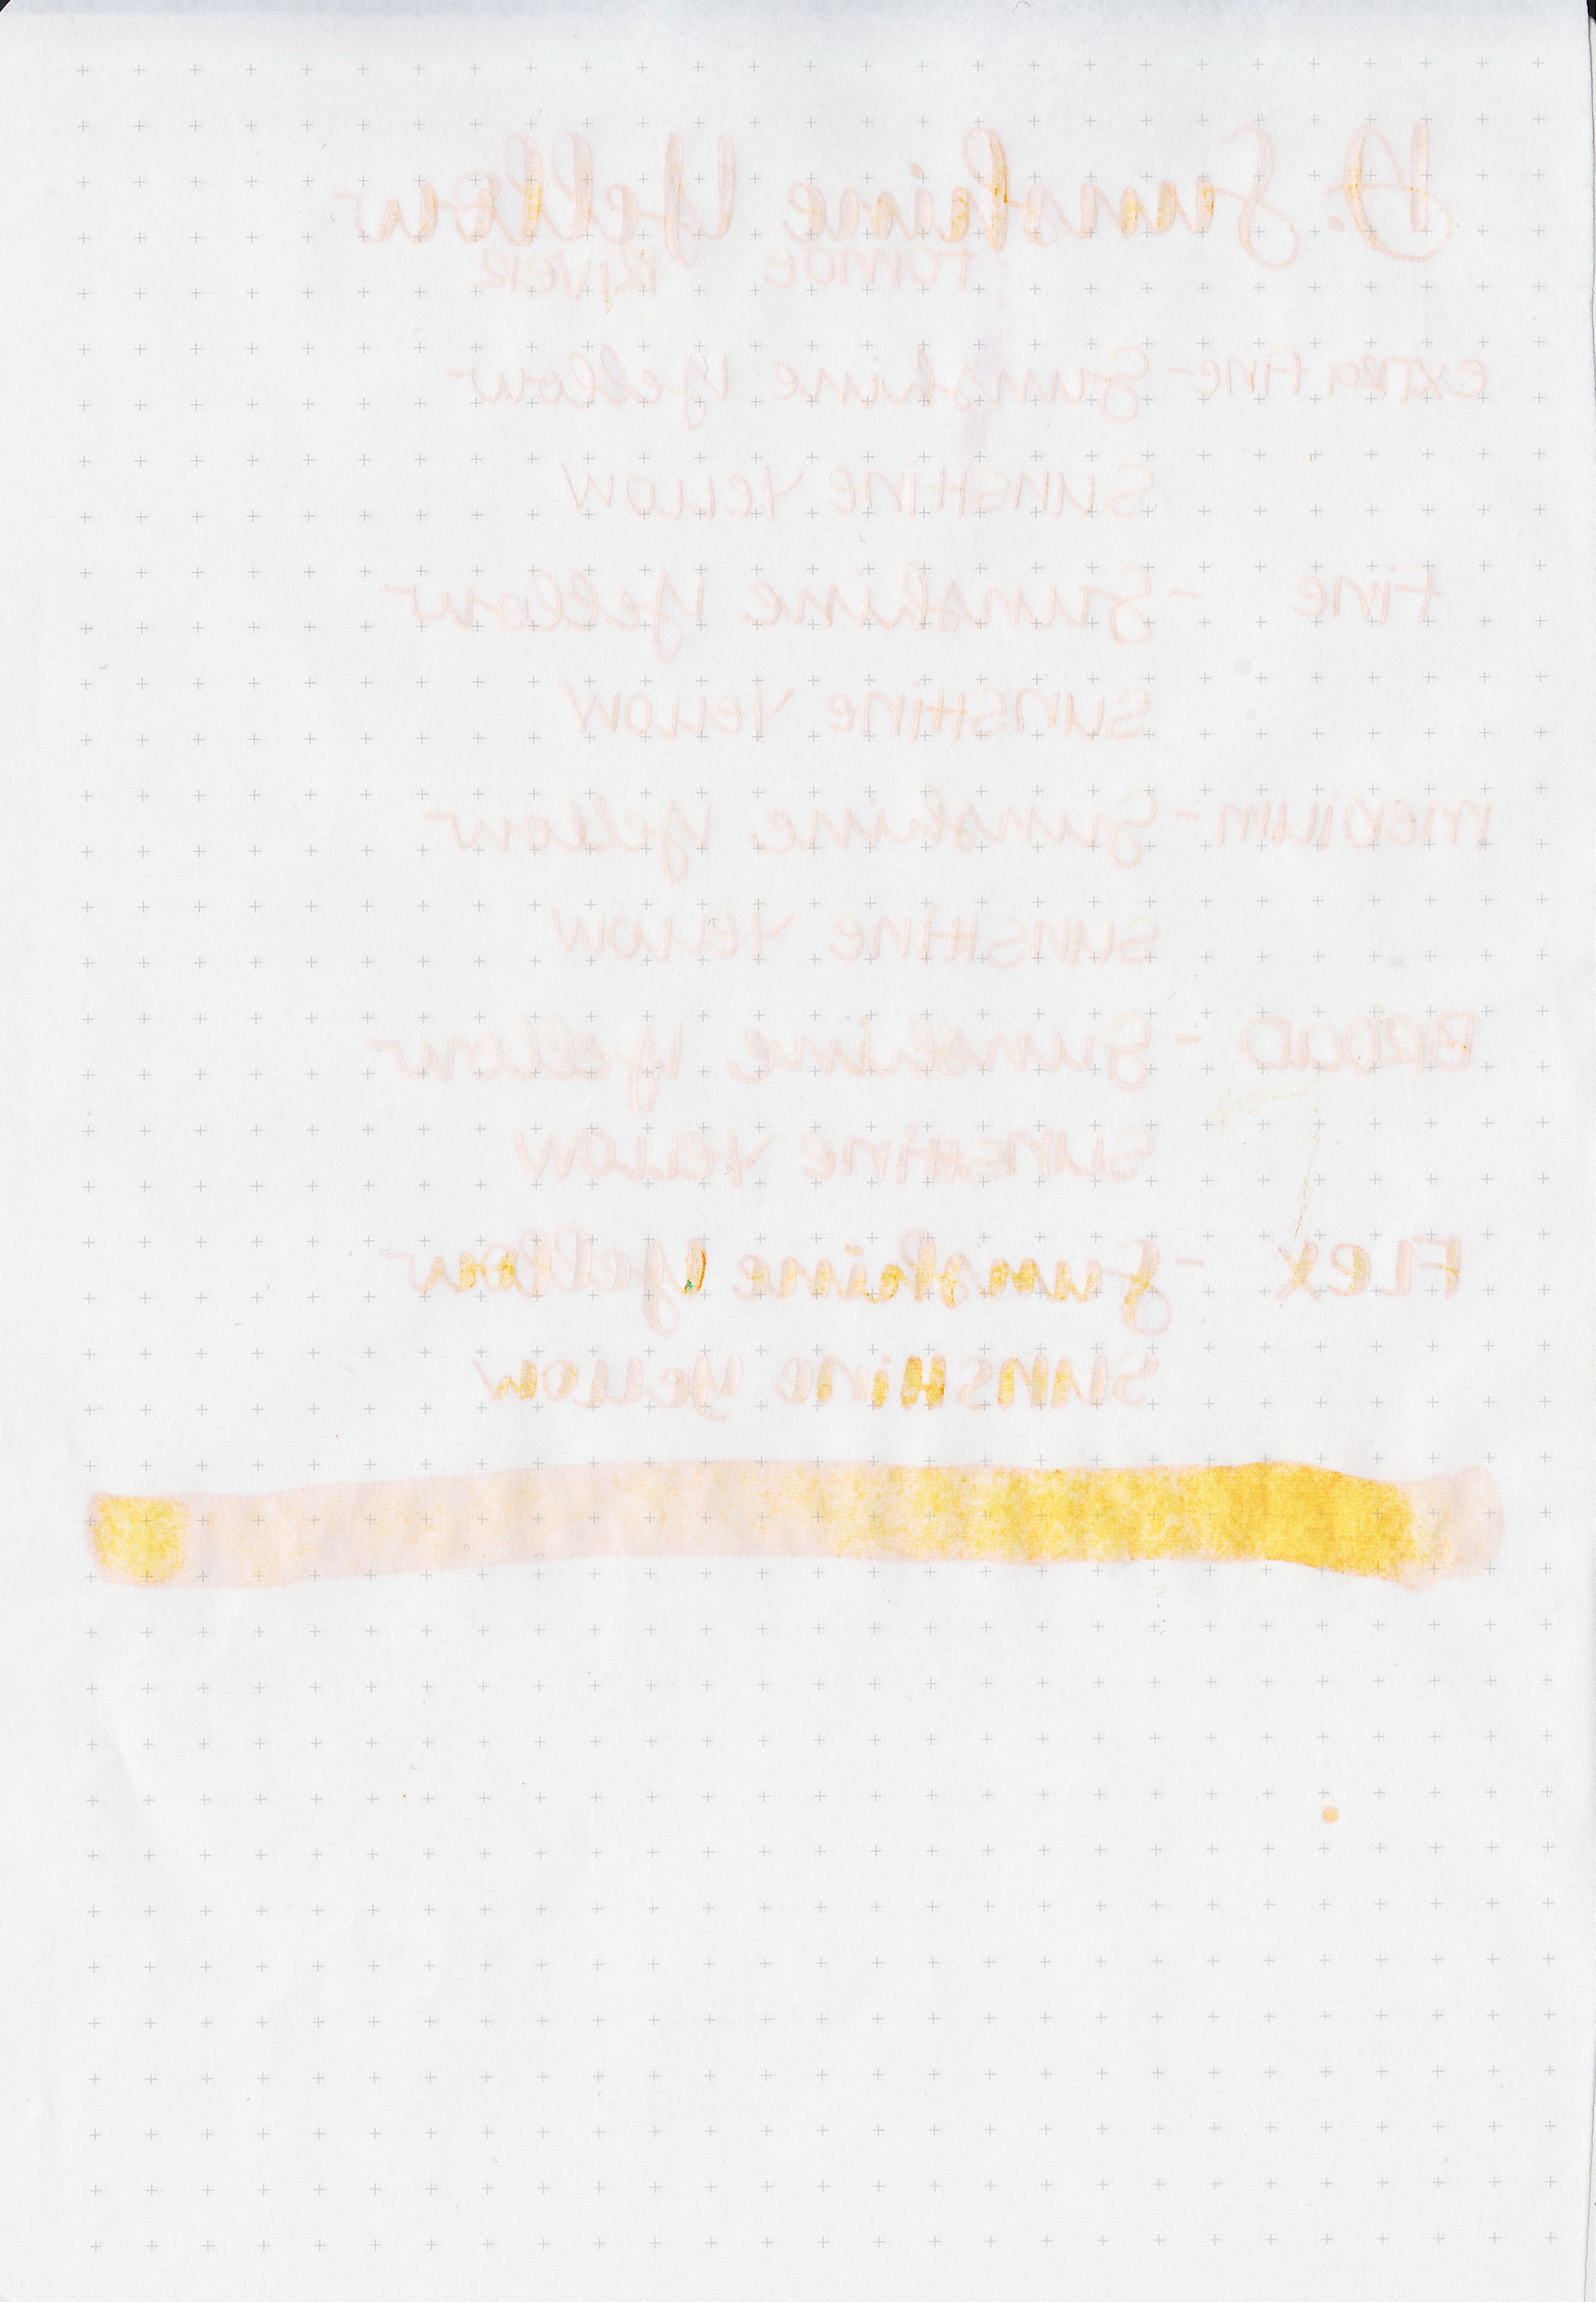 D. Sunshine Yellow
TOMOE RIVER
extra Fine - Sunshine Yellow
SUNSHINE YELLOW
Fine - Sunshine Yellow
SUNSHINE YELLOW
MEDIUM - Sunshine Yellow
SUNSHINE YELLOW
BROAD - Sunshine Yellow
SUNSHINE YELLOW
FLEX - Sunshine Yellow
SUNSHINE YELLOW